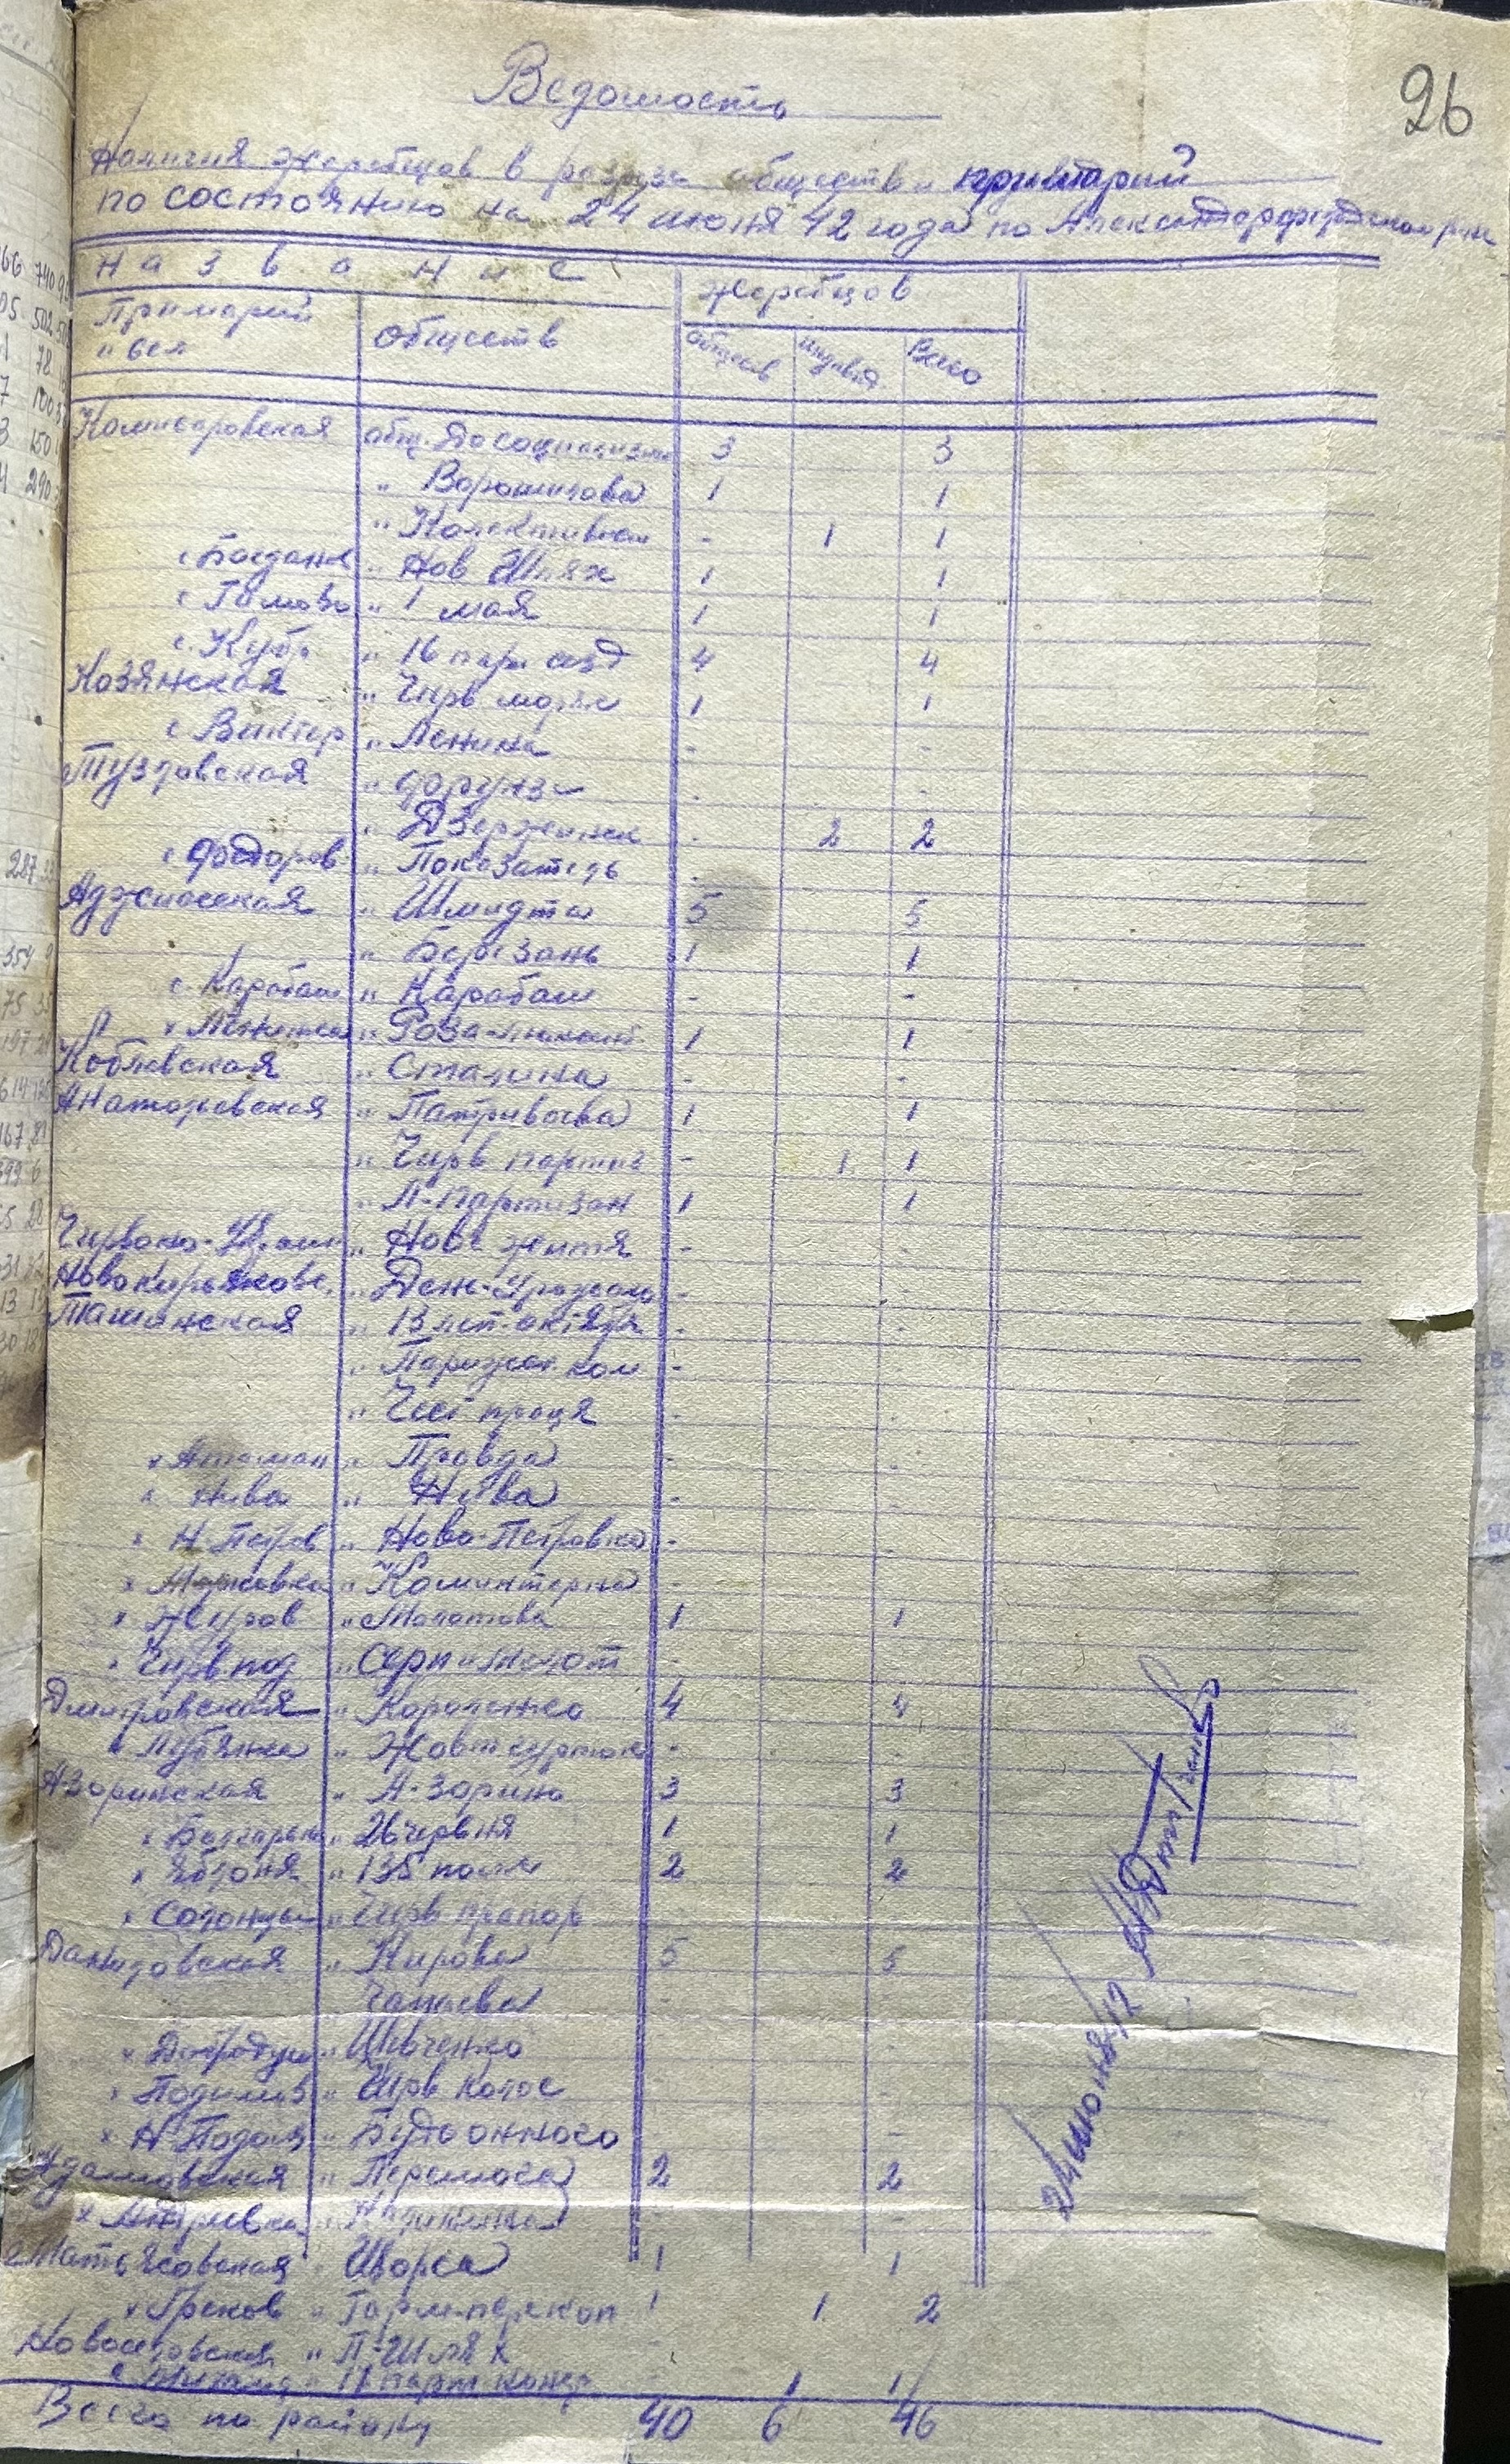 26
Ведомость
Наличия жеребцов в разрезе обществ и примарий
по состоянию на 24 июня 42 года по Александерфельдском р-не
Название
Жеребцов
Примарий и сел
Обществ
обществ
индивид.
Всего
Комисаровская общ. Досоциализма 3 3
" Ворошилова 1 1
" Колективист - 1 1
с Богдан " Нов Шлях 1 1
с " 1 мая 1 1
с. " 16 парт сезд 4 4
Козянская " Чирв 1 1
с Виктор " Ленина - -
Тузловская " Фрунзе - -
" Дзержинск - 2 2
с Федоров " Показатель -
Аджиасская " Шмидта 5 5
" Березань 1 1
с. Карабаш " Карабаш - -
" Роза 1 1
Коблевская " Сталина - -
Анатольевская " Петривского 1 1
" Чирв партиз - 1 1
" Л-Партизан 1 1
Чирвоно-Украин " Нове життя - -
Новокирьяковс. " День Урожая - -
Ташинская " 13 лет октябр - -
" Парижск. ком -
" Чист праця - -
х Атаман " Правда - -
х Нива " Нива - -
х Н. Петров " Ново-Петровка - -
х " Коминтерна -
х " Молотова 1 1
х Чирв. под " Серп и Молот -
Дмитровская " 4 4
" Жовт -
Азоринская " А-Зорина 3 3
х Болгарка " 26 червня 1 1
х Яблоня " 135 полк 2 2
х Солонцы " Чирв прапор
Даниловская " Кирова 5 5
Чапаева
х " Шевченко -
х " Чирв колос
х Н " Будьонного -
Адамовская " Перемога 2 2
х " Калинина
Матьясовская " Щорса 1 1
х Греков " 1 1 2
Новоселовская " П-Шлях
" 17 парт конф 1 1
Всего по району 40 6 46
24 июня 42